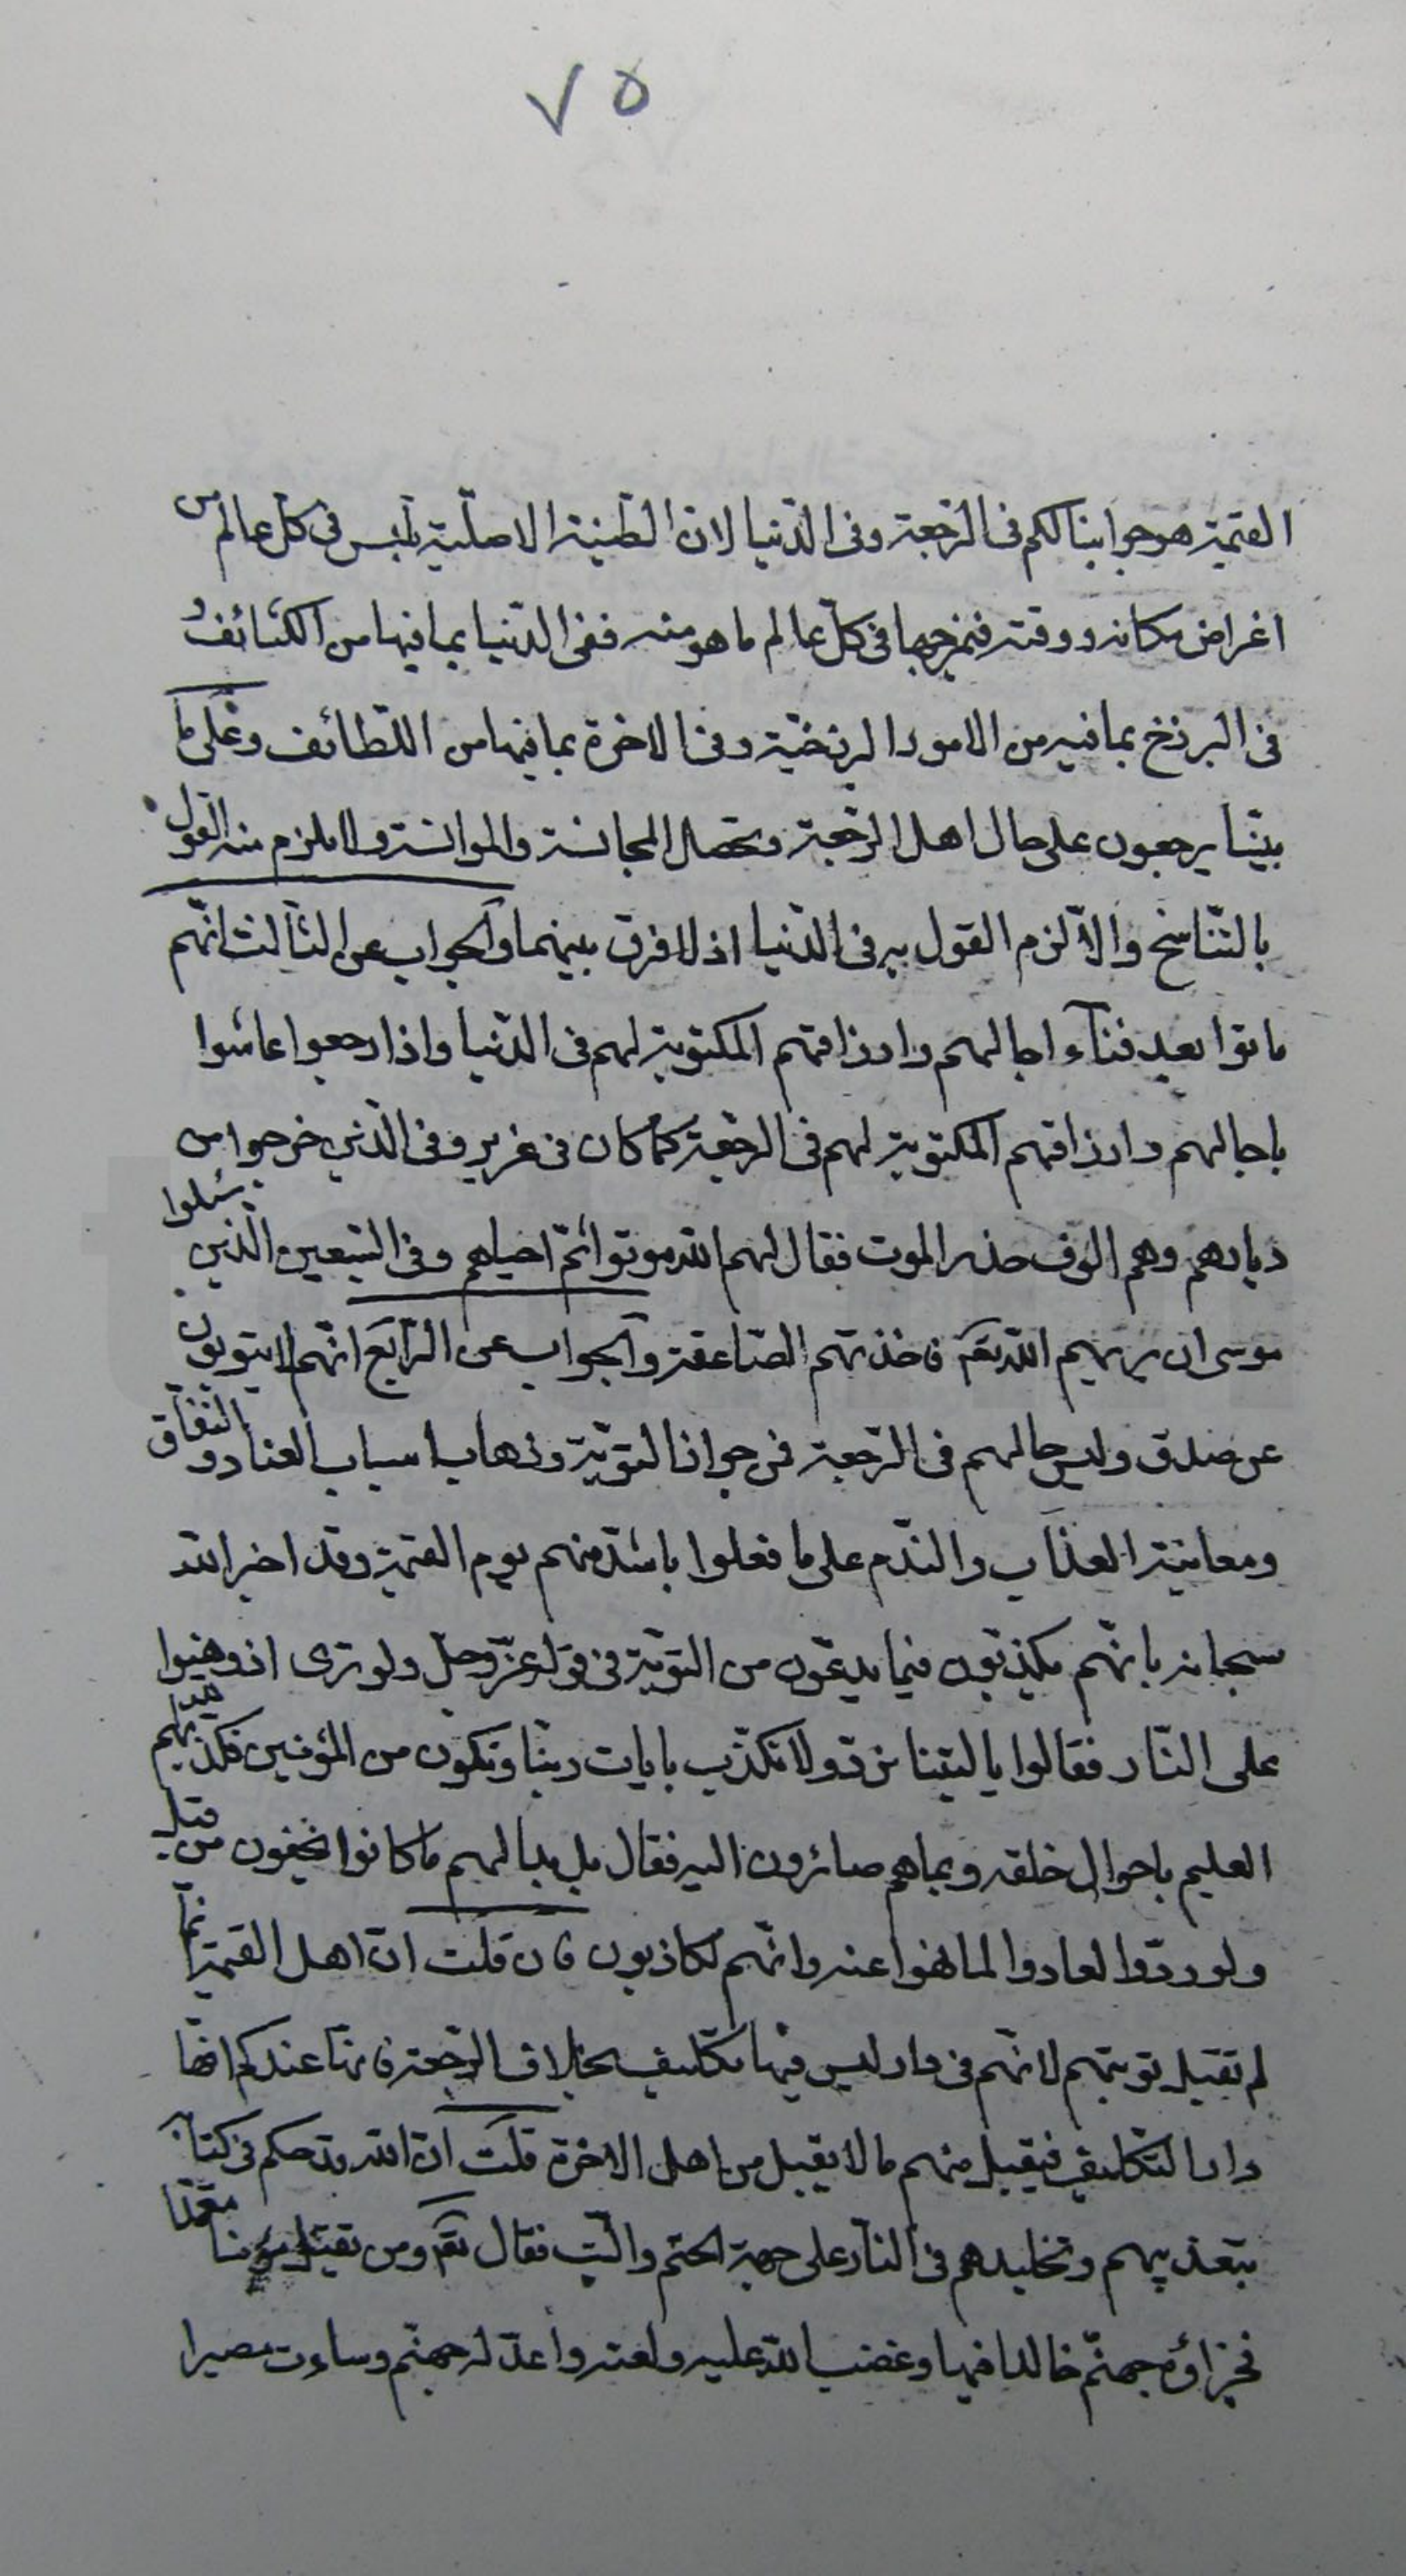 ٧٥
القيمة هو جوابنا لكم فى الرجعة وفى الدّنيا لانّ الطّينة الاصليّة تلبس فى كلّ عالم من
اغراض مكانه ووقته فيمزجها فى كلّ عالم ما هو منه ففى الدّنيا بما فيها من الكثائف و
فى البرزخ بما فيه من الامور البرزخيّة وفى الاخرة بما فيها من اللّطائف وعلى ما
بيّنّا يرجعون على حال اهل الرّجعة وتحصل المجانسة والموانسة ولا يلزم منه القول
بالتّناسخ والّا لزم القول به فى الدّنيا اذ لا فرق بينهما والجواب عن الثّالث انّهم
ماتوا بعد فنآء اجالهم وارزاقهم المكتوبة لهم فى الدّنيا واذا رجعوا عاشوا
باجالهم وارزاقهم المكتوبة لهم فى الرجعة كما كان فى عزير وفى الّذين خرجوا من
ديارهم وهم الوف حذر الموت فقال لهم الله موتوا ثمّ احياهم وفى السّبعين الّذين سئلوا
موسى ان يريهم الله تعٓ فاخذتهم الصّاعقة والجواب عن الرّابع انّهم لا يتوبون
عن صدق وليس حالهم فى الرّجعة فى جواز التوبة وذهاب اسباب العناد والنفاق
ومعاينة العذاب والندم على ما فعلوا باشدّ منهم يوم القيمة وقد اخبر الله
سبحانه بانّهم يكذبون فيما يدعون من التوبة فى قوله عزّ وجل ولو ترى اذ وقفوا
على النّار فقالوا يا ليتنا نردّ ولا نكذّب بايات ربّنا ونكون من المؤمنين فكذبهم
العليم باحوال خلقه وبما هم صائرون اليه فقال بل بدا لهم ما كانوا يخفون من قبل
ولو ردّوا لعادوا لما نهوا عنه وانّهم لكاذبون فان قلت انّ اهل القيمة انّما
لم تقبل توبتهم لانّهم فى دار ليس فيها تكليف بخلاف الرجعة فانّها عندكم انّها
دار التكليف فيقبل منهم ما لا يقبل من اهل الاخرة قلت انّ الله قد حكم فى كتابه
بتعذيبهم وتخليدهم فى النّار على جهة الحتم والبتّ فقال تعٓ ومن يقتل مؤمنا متعمّدا
فجزاؤه جهنّم خالدا فيها وغضب الله عليه ولعنه واعدّ له جهنّم وساءت مصيرا